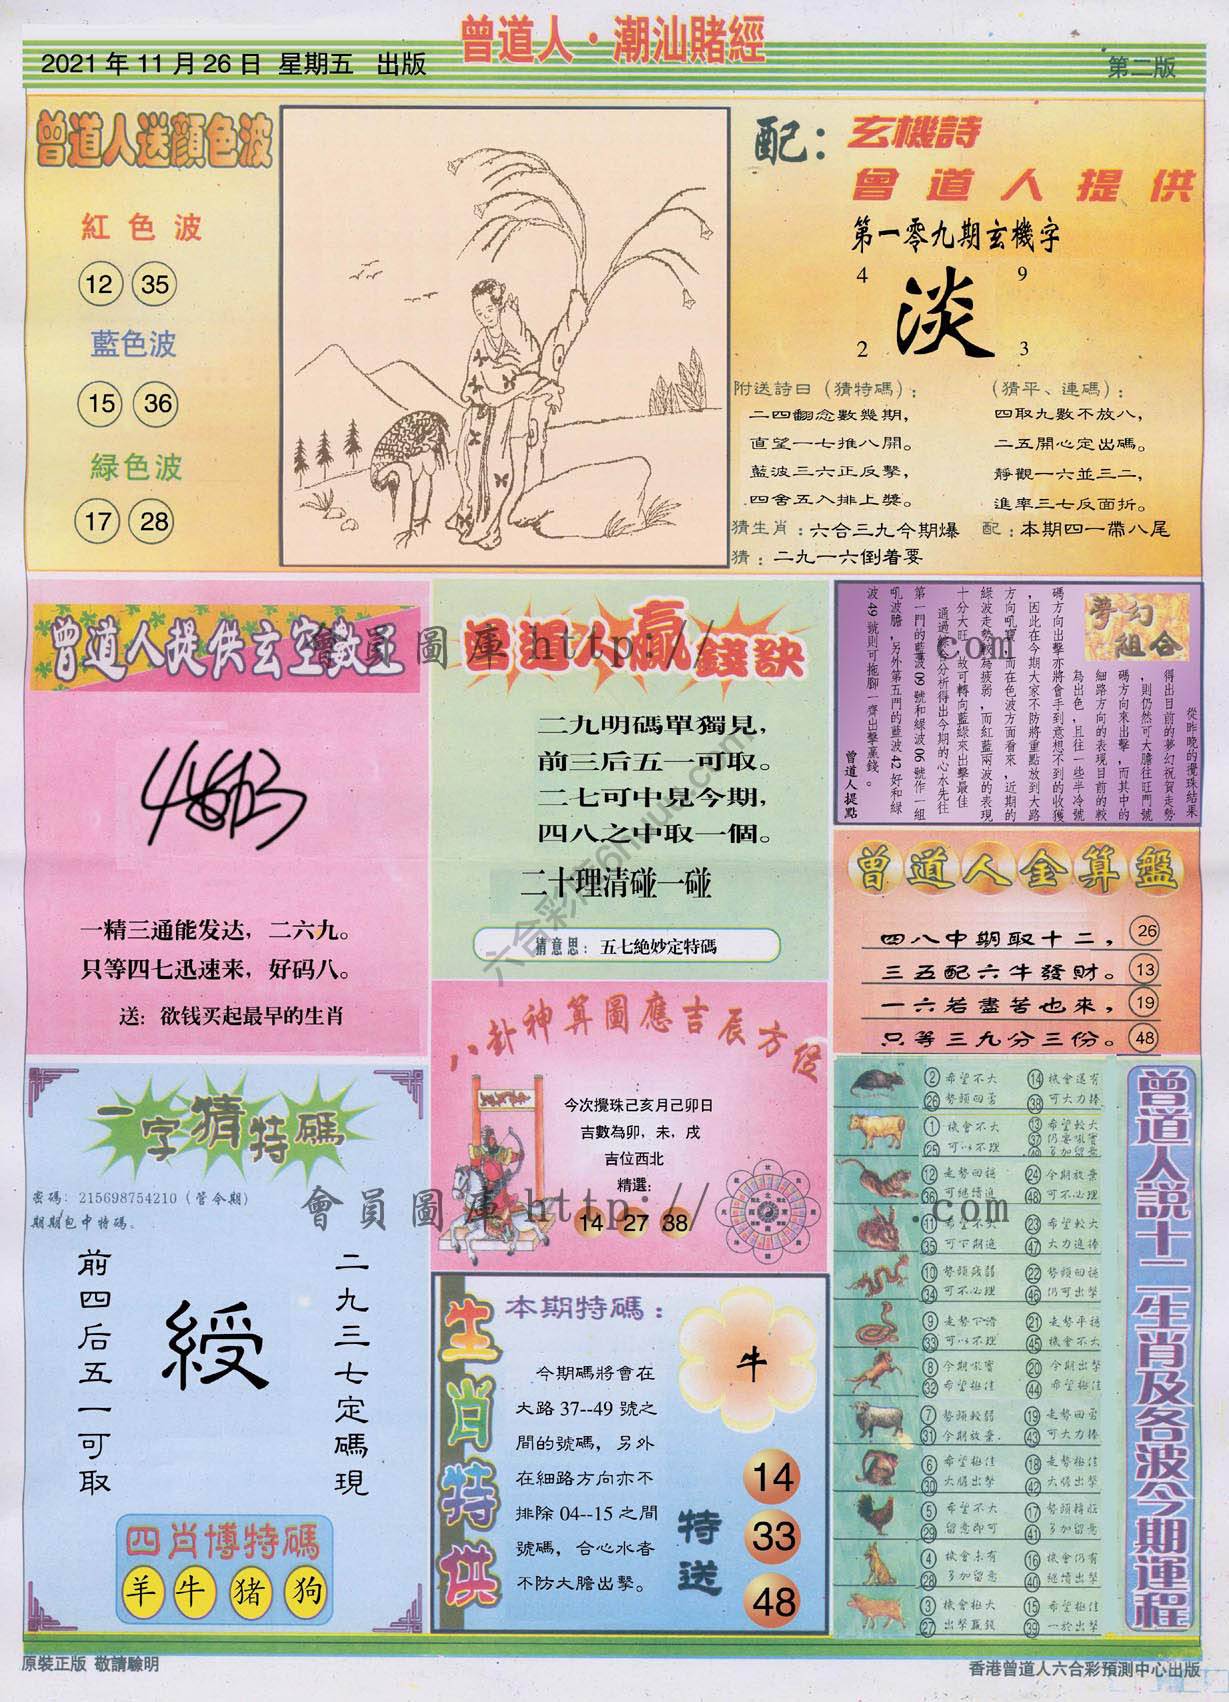 曾道人·潮汕賭經
2021年11月26日 星期五 出版
第二版
曾道人送顏色波
紅色波
12 35
藍色波
15 36
緑色波
17 28
配：玄機詩
曾道人提供
第一零九期玄機字
4 9
淡
2 3
附送詩日（猜特碼）：
二四翻念數幾期，
直望一七推八開。
藍波三六正反擊，
四舍五入排上獎。
（猜平、連碼）：
四取九數不放八，
二五開心定出碼。
靜觀一六並三二，
進率三七反面折。
猜生肖：六合三九今期爆
配：本期四一帶八尾
猜：二九一六倒着要
曾道人提供玄空數王
一精三通能发达，二六九。
只等四七迅速来，好码八。
送：欲钱买起最早的生肖
曾道人贏錢訣
二九明碼單獨見，
前三后五一可取。
二七可中見今期，
四八之中取一個。
二十理清碰一碰
猜意思：五七絶妙定特碼
夢幻
組合
從昨晚的攪珠結果
得出目前的夢幻祝賀走勢
，則仍然可大膽往旺門號
碼方向來出擊，而其中的
細路方向的表現目前的較
為出色，且往一些半冷號
碼方向出擊亦將會手到意想不到的收獲
，因此在今期大家不防將重點放到大路
方向吼寶，而在色波方面看來，近期的
綠波走勢較為疲弱，而紅藍兩波的表現
十分大旺，故可轉向藍綠來出擊最佳
通過綜合分析得出今期的心水先往
第一門的藍波09號和綠波06號作一組
吼波膽，另外第五門的藍波42好和綠
波49號則可拖腳一齊出擊贏錢。
曾道人提點
曾道人金算盤
四八中期取十二， 26
三五配六牛發財。 13
一六若盡苦也來， 19
只等三九分三份。 48
八卦神算圖應吉辰方位
今次攪珠己亥月己卯日
吉數為卯，未，戌
吉位西北
精選：
14 27 38
一字猜特碼
密碼：215698754210（管今期）
期期包中特碼。
二九三七定碼現
綬
前四后五一可取
四肖博特碼
羊 牛 猪 狗
生肖特供
本期特碼：
牛
今期碼將會在
大路37--49號之
間的號碼，另外
在細路方向亦不
排除04--15之間
號碼，合心水者
不防大膽出擊。
特送
14
33
48
曾道人説十二生肖及各波今期運程
2 希望不大 14 機會還有
26 勢頭回勇 38 可大力捧
1 機會不大 13 希望較大
37 仍要吼實
25 可以不理 49 多加留意
12 走勢回穩 24 今期放棄
36 可繼續追 48 可不必理
11 希望不大 23 希望較大
35 可下期追 47 大力追捧
10 勢頭疲弱 22 勢頭回穩
34 可不必理 46 仍可出擊
9 走勢下滑 21 走勢平穩
33 可以不理 45 機會不大
8 今期吼實 20 今期出擊
32 希望極佳 44 希望極佳
7 勢頭較弱 19 走勢回勇
31 今期放棄 43 可大力捧
6 希望極佳 18 走勢極佳
30 大膽出擊 42 大膽出擊
5 希望不大 17 勢頭轉旺
29 留意即可 41 多加留意
4 機會未有 16 機會仍有
28 多加留意 40 繼續出擊
3 機會極大 15 希望極佳
27 出擊贏錢 39 一於出擊
會員圖庫 http:// .com
會員圖庫 http:// .com
原裝正版 敬請驗明
香港曾道人六合彩預測中心出版